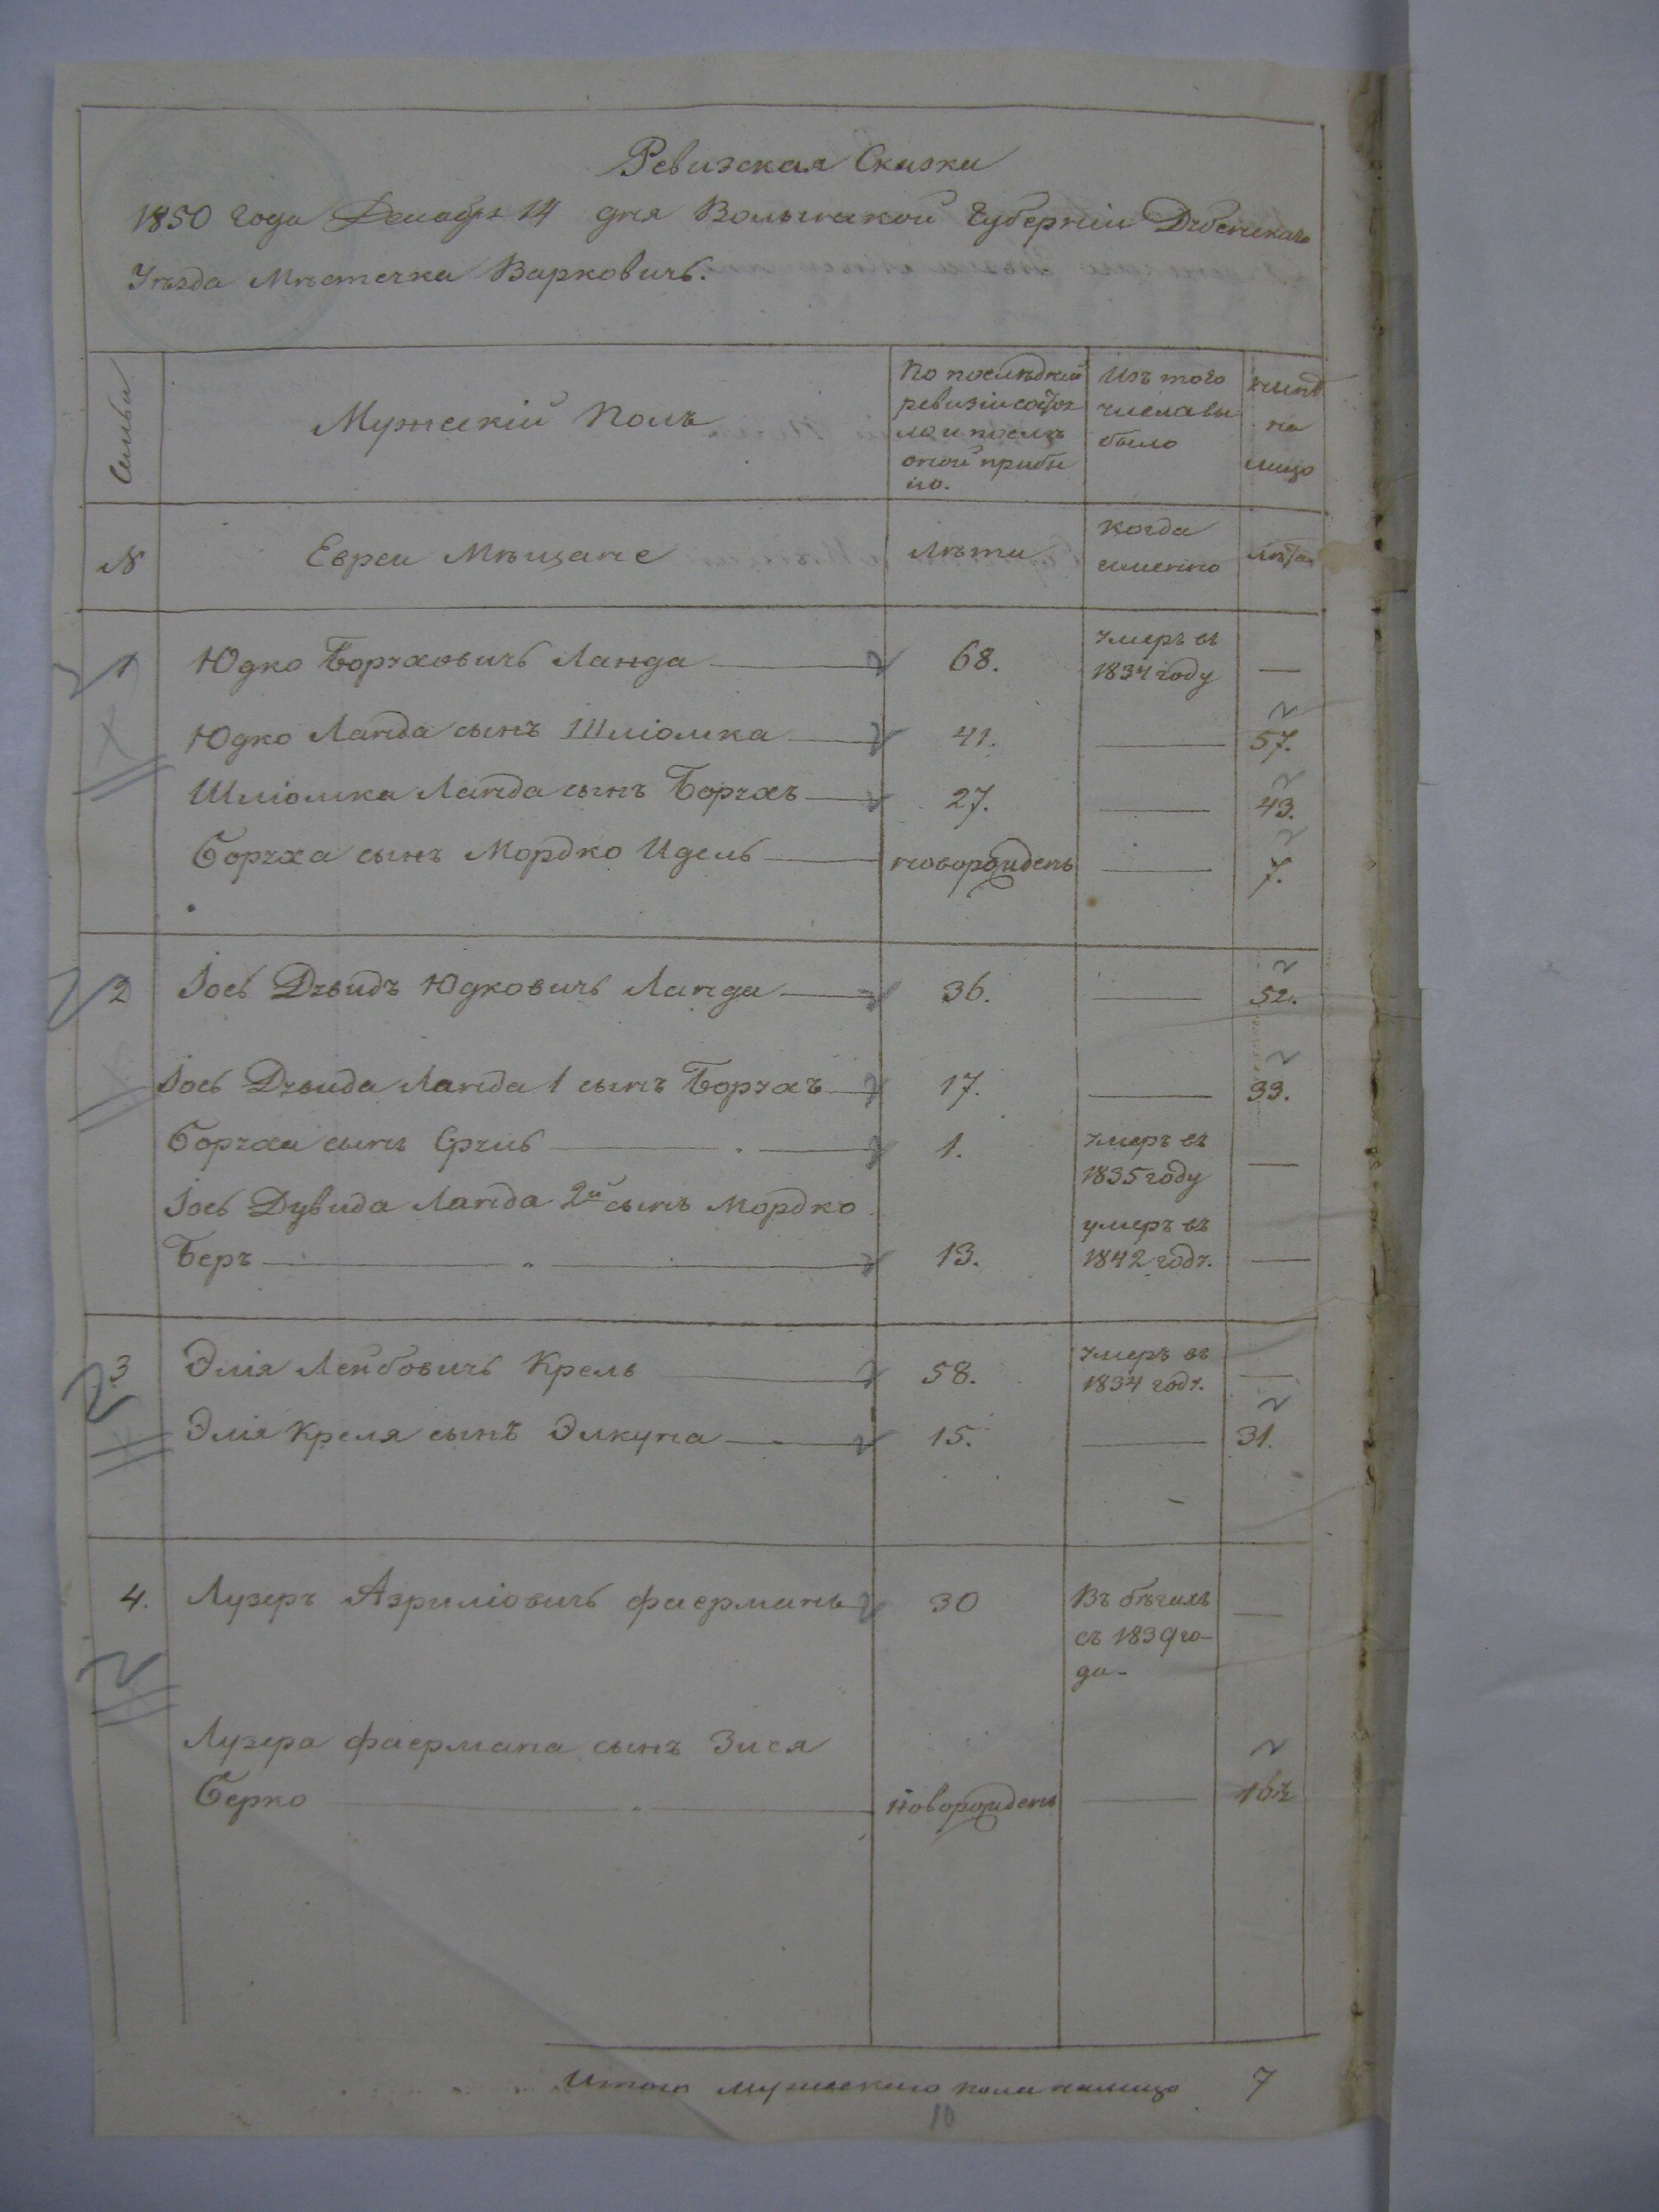 Ревизская Сказка
1850 года Декабря 14 дня Волынской Губерніи Дубенскаго
Уѣзда Мѣстечка Варковичь.
Семьи
Мужескій Полъ
По послѣдней
ревизіи состоя
ло и послѣ
оной прибы
ло.
Изъ того
числа вы
было
нынѣ
на
лицо
№
Евреи Мѣщане
Лѣта
когда
именно
Лѣта
1 Юдко Боруховичь Ланда 68. умеръ въ
1834 году —
Юдко Ланда сынъ Шліомка 41. — 57.
Шліомка Ланда сынъ Борухъ 27. — 43.
Боруха сынъ Мордко Идель новорожденъ — 7.
2 Іось Дувидъ Юдковичь Ланда 36. — 52.
Іось Дувида Ланда 1 сынъ Борухъ 17. — 33.
Боруха сынъ Сруль 1. умеръ въ
1835 году —
Іось Дувида Ланда 2й сынъ Мордко
Беръ 13. умеръ въ
1842 году. —
3 Элія Лейбовичь Крель 58. умеръ въ
1834 году. —
Элія Креля сынъ Элкуна 15. — 31.
4. Лузеръ Азриліовичь Фаерманъ 30 Въ бѣгахъ
съ 1839 го-
да —
Лузера Фаермана сынъ Зися
Берко новорожденъ — 16½
Итого мужескаго пола налицо 7
10